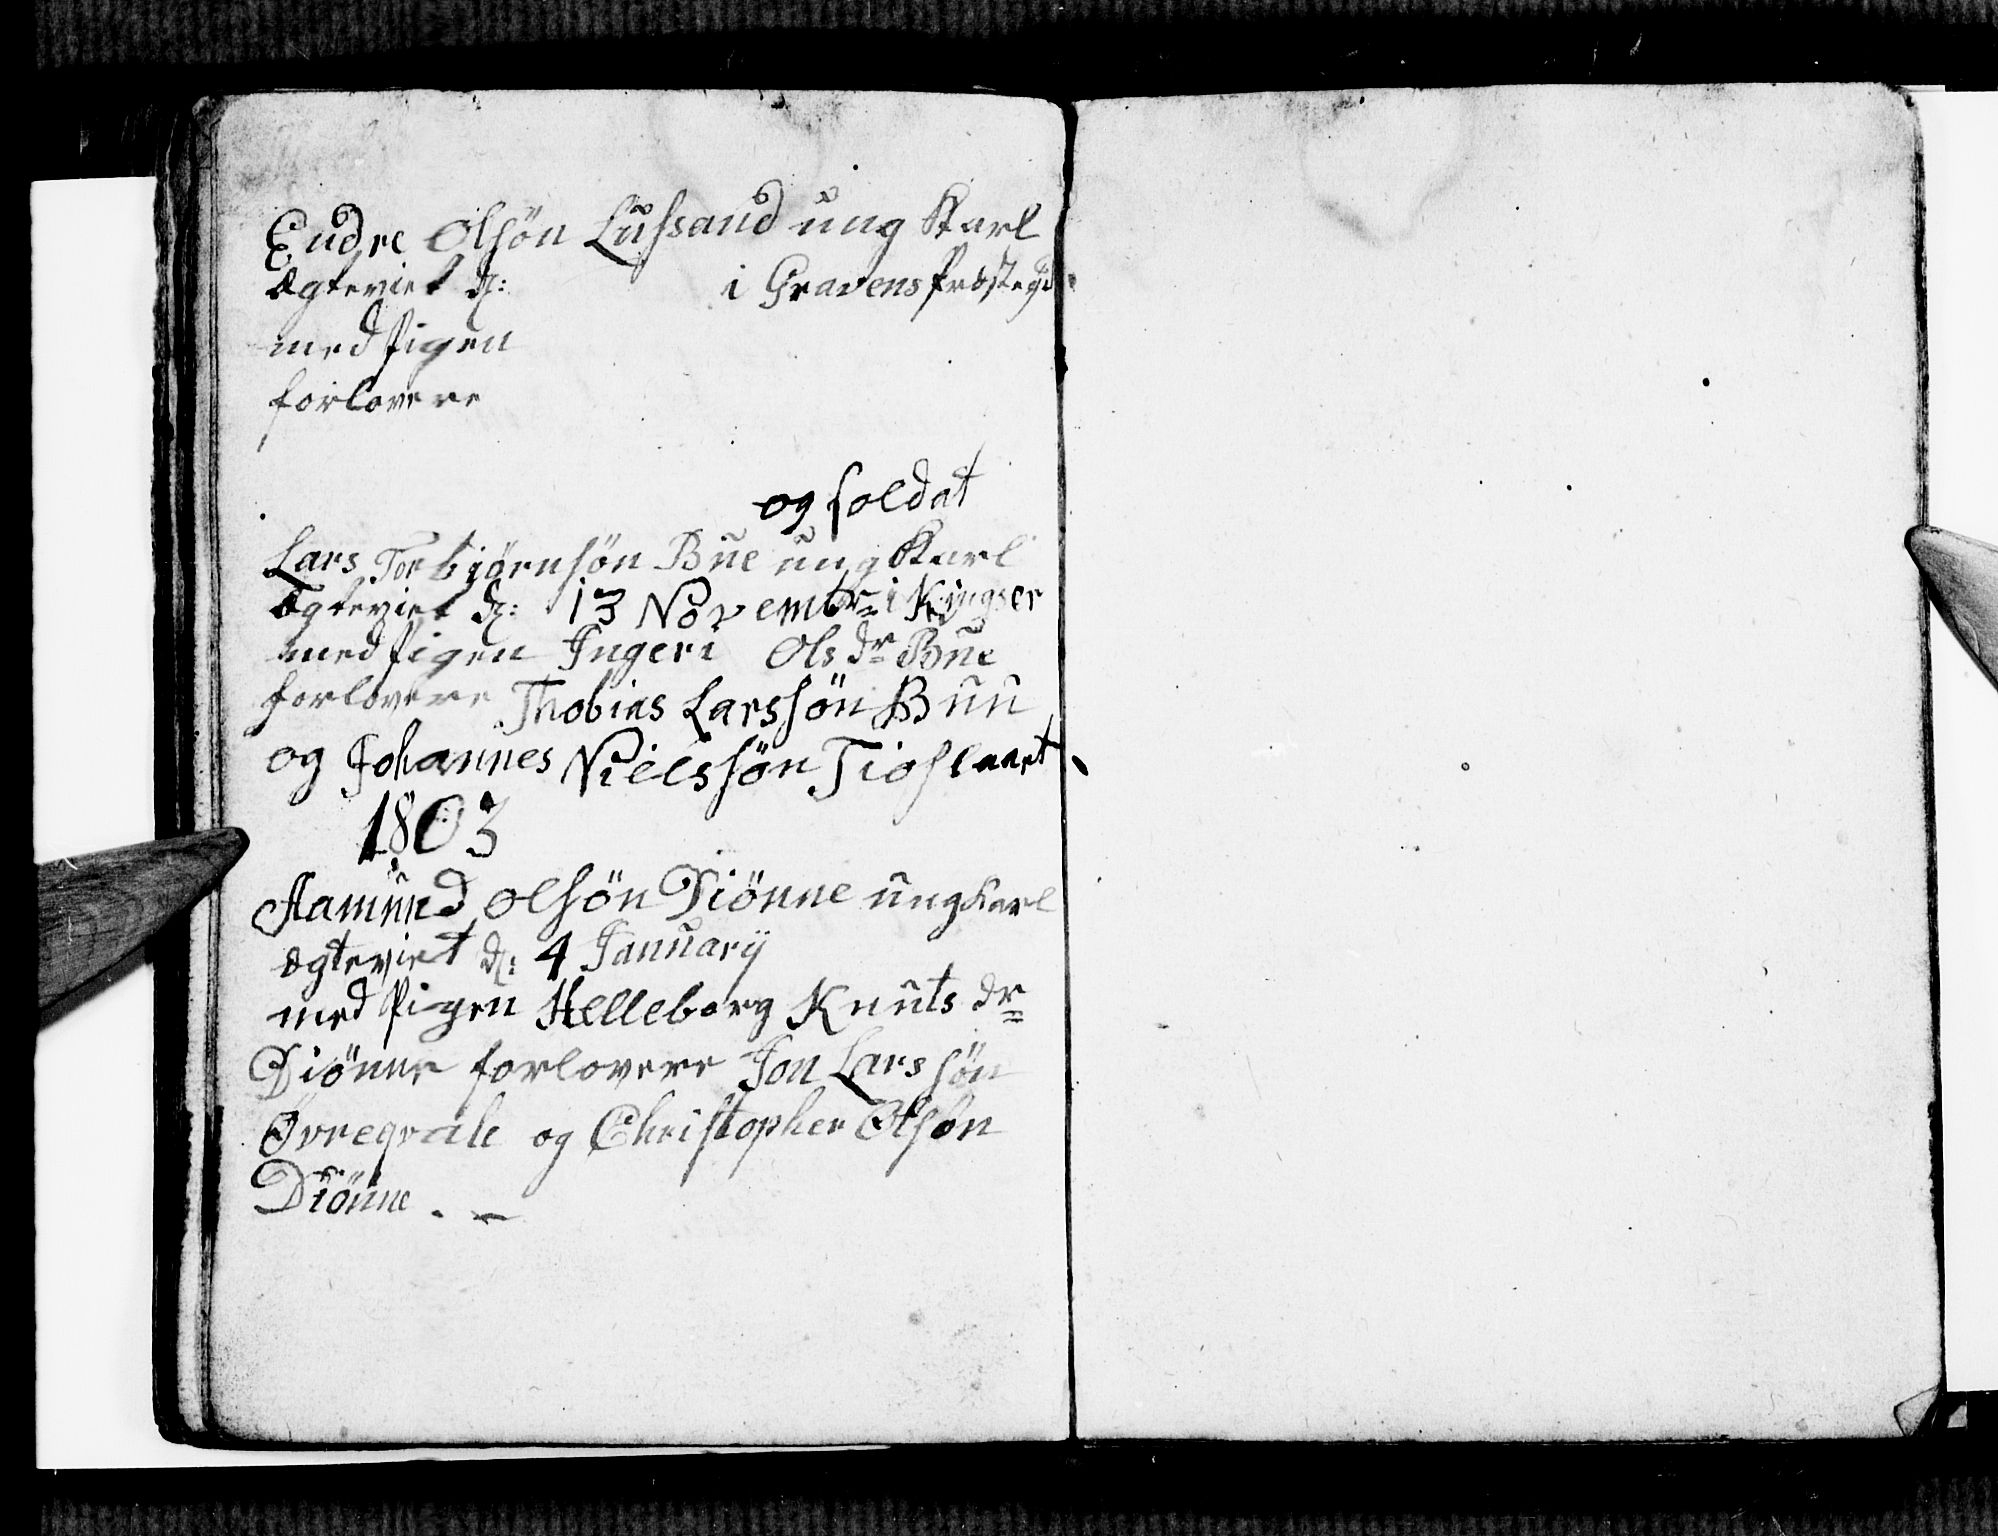 Endre Olsön Lussand ung Karl
Ægteviet d: i Gravens Præstegd
med Pigen
forlovere
og soldat
Lars Torbiörnsön Bue ung Karl
Ægteviet d: 13 Novembr i Kingser
med Pigen Ingeri Ols dr Bue
forlovere Thobias Larssön Buu
og Johannes Nielssön Tioflaat
1803
Aamund Olsön Diönne ungkarl
ægteviet d: 4 Januarÿ
med Pigen Helleborg Knuts dr
Diönne forlovere Jon Larssön
Øvreqvale og Christopher Olsön
Diönne . –